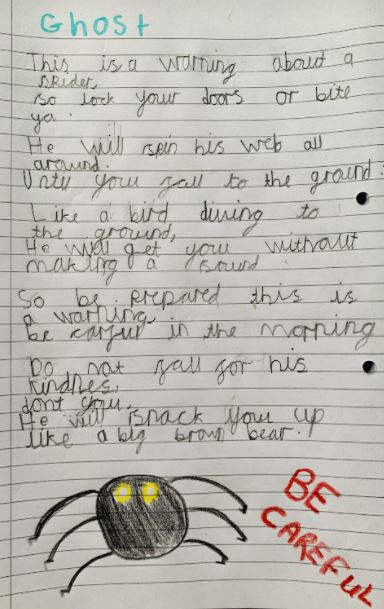 Ghost
This is a warning about a
spider,
so lock your doors or bite
ya.
He will spin his web all
around.
Until you fall to the ground.
Like a bird diving to
the ground,
He will get you without
making a sound.
So be prepared this is
a warning,
be carful in the morning
Do not fall for his
kindnes,
dont you,
He will snack you up
like a big brown bear.
BE
CAREFUL